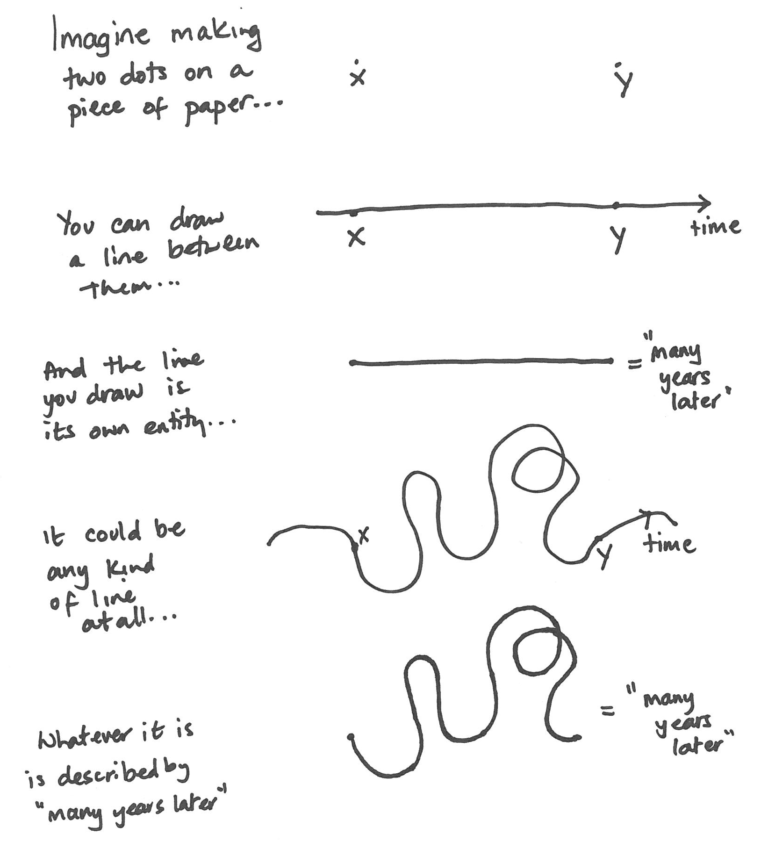 Imagine making
two dots on a
piece of paper...
x
y
You can draw
a line between
them...
x
y
time
And the line
you draw is
its own entity...
= "many
years
later"
It could be
any kind
of line
at all...
x
y
time
Whatever it is
is described by
"many years later"
= "many
years
later"